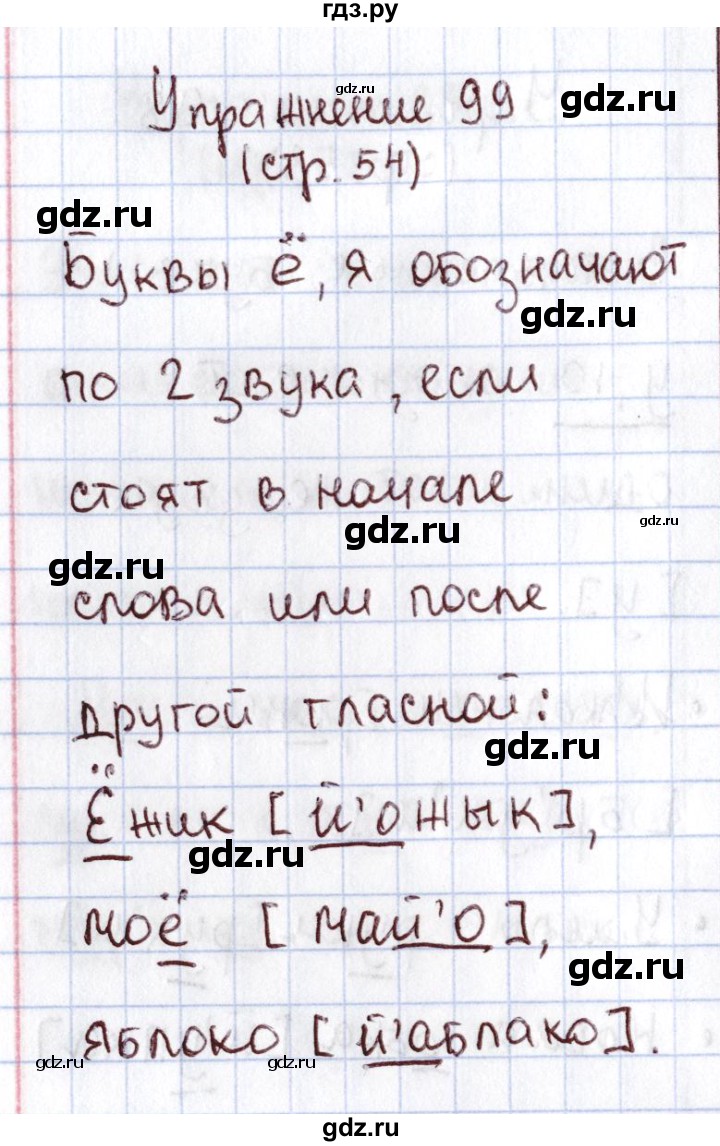 гдз.ру
Упражнение 99
gdz.ru
gdz.ru
(стр. 54)
gdz.ru
Буквы ё, я обозначают
gdz.ru
по 2 звука, если
стоят в начале
gdz.ru
gdz.ru
gdz.ru
слова или после
другой гласной:
gdz.ru
Ёжик [й'ожык],
gdz.ru
моё [май'о],
gdz.ru
яблоко [й'аблако].
gdz.ru
gdz.ru
gdz.ru
gdz.ru